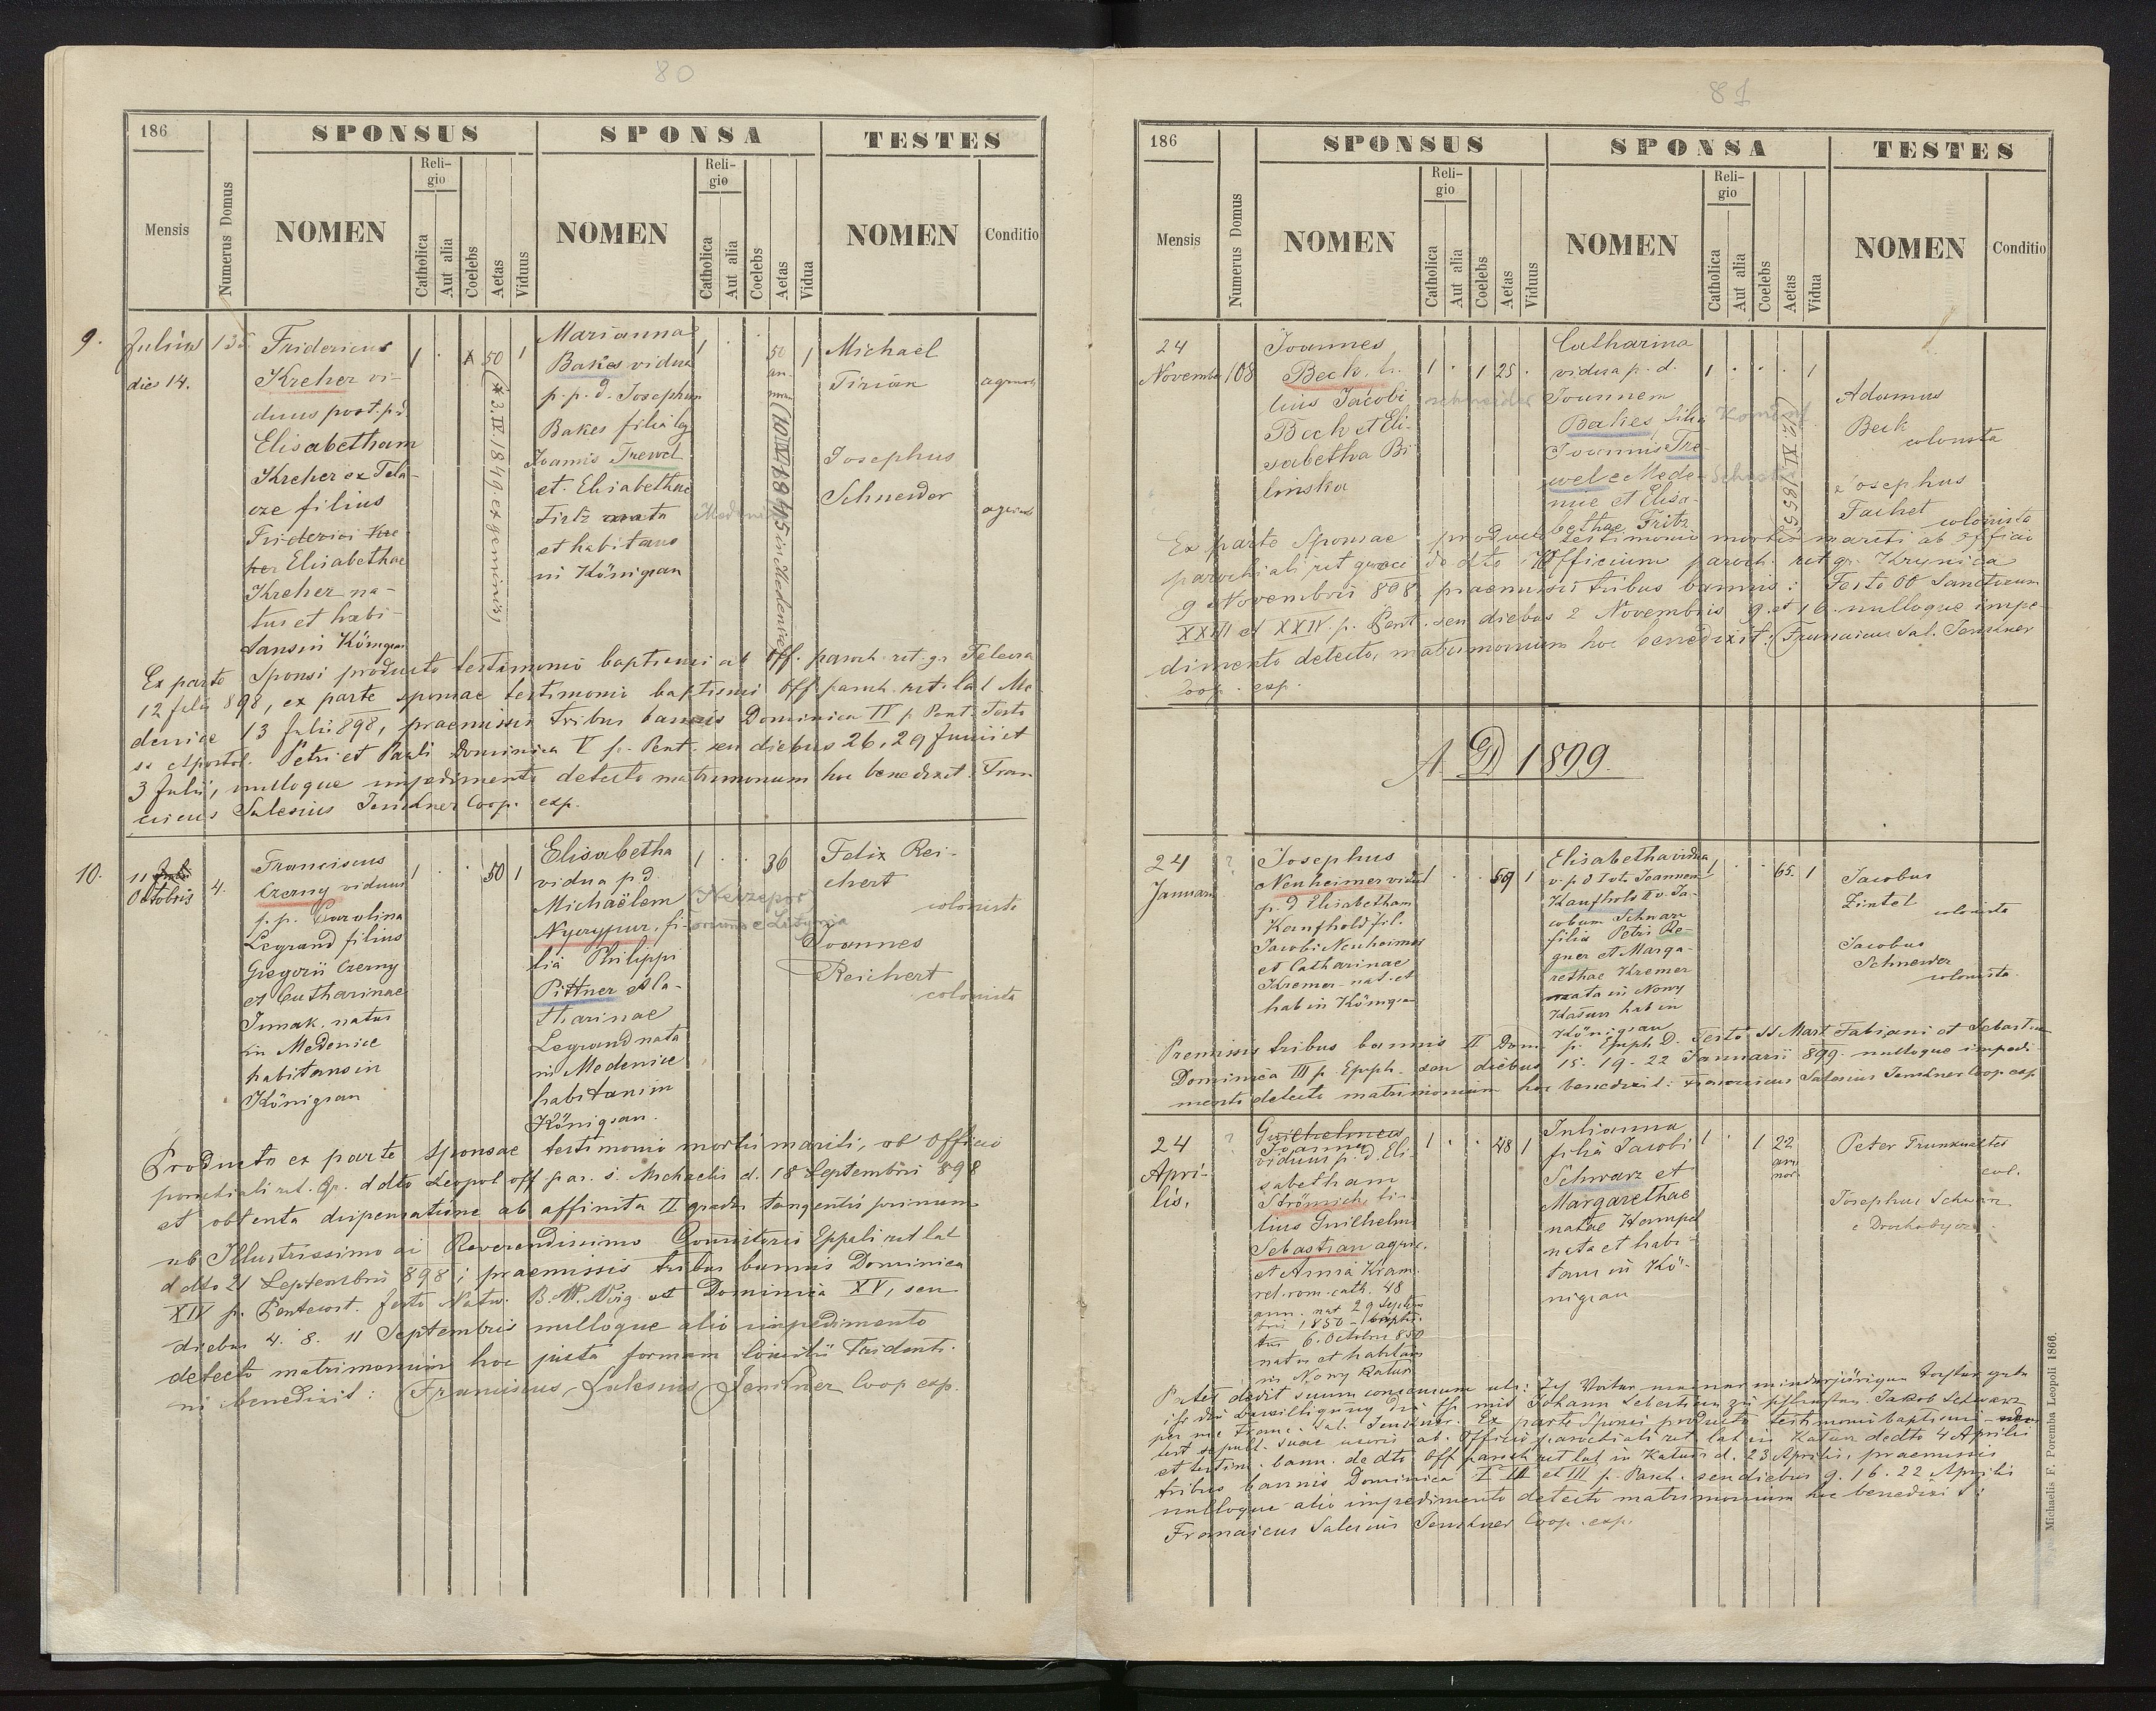 80
186
SPONSUS
SPONSA
TESTES
Mensis
Numerus Domus
NOMEN
Reli-
gio
Catholica
Aut alia
Coelebs
Aetas
Viduus
NOMEN
Reli-
gio
Catholica
Aut alia
Coelebs
Aetas
Vidua
NOMEN
Conditio
9.
Julius
dies 14.
Fridericus
Kreher vi-
duus post. p. d.
Elisabetham
Kreher ex Tela-
cze filius
Friderici Kre
her Elisabethae
Kreher na-
tus et habi-
tans in Königsau
1
50
1
(* 3.IV.1849. ex geminis)
Marianna
Bakes vidua
p. p. d. Josephum
Bakes filia leg
Joannis Trewel
et Elisabethae
Firtz nata
et habitans
in Königsau
1
50
an-
norum
(10 IV 1845 in Medenice)
1
Michael
Tirian
Josephus
Schneider
Ex parte Sponsi producto testimonio baptismi ab Off. paroch. rit. gr.
12 Julii 898, ex parte sponsae testimonio baptismi Off. paroch. rit. lat Me
denice 13 Julii 898, praemissis tribus bannis Dominica IV p. Pent. Festo
ss Apostol. Petri et Pauli Dominica V p. Pent. seu diebus 26, 29 Junii et
3 Julii, nulloque impedimento detecto matrimonium hoc benedixit. Fran
ciscus Salesius Jenkner Coop. exp.
10.
11
Octobris
4.
Franciscus
Czerny viduus
p. p. Carolina
Legrand filius
Gregorii Czerny
et Catharinae
natus
in Medenice
habitans in
Königsau
1
50
1
Elisabetha
vidua p d.
Michaëlem
fi-
lia Philippi
Pittner et Ca-
tharinae
Legrand nata
in Medenice
habitans in
Königsau.
1
36
Felix Rei-
chert
colonista
Joannes
Reichert
colonista
Producto ex parte sponsae testimonio mortis mariti, ab Officio
parochiali rit. gr. d dto Leopol off par. s. Michaelis d. 18 Septembris 898
et obtenta dispensatione ab affinita II gradu tangentis primum
ab Illustrissimo ac Reverendissimo Consistorio Eppali rit lat
d dto 21 Septembris 898; praemissis tribus bannis Dominica
XIV p. Pentecost. festo Nativ. B. M. Virg. et Dominica XV, seu
diebus 4. 8. 11 Septembris nulloque alio impedimento
detecto matrimonium hoc juxta formam Concilii Tridenti-
ni benedixit: Franciscus Salesius Jenkner Coop exp.
81
186
SPONSUS
SPONSA
TESTES
Mensis
Numerus Domus
NOMEN
Reli-
gio
Catholica
Aut alia
Coelebs
Aetas
Viduus
NOMEN
Reli-
gio
Catholica
Aut alia
Coelebs
Aetas
Vidua
NOMEN
Conditio
24
Novembr
108
Joannes
Beck fi-
lius Jacobi
Beck et Eli-
sabetha Bi-
linska
schneider
1
1
25
Catharina
vidua p. d.
Joannem
Bakes filia
Joannis Tre-
wel e Mede-
nice et Elisa-
bethae Fritz
1
1
Adamus
Beck
colonista
Josephus
colonista
Ex parte Sponsae producto testimonio mortis mariti ab Officio
parochiali rit graeci dd dto Officium paroch. rit gr. Krynica
9 Novembris 898, praemissis tribus bannis: Festo OO Sanctorum
XXIII et XXIV p. Pent. seu diebus 2 Novembris 9. et 16. nulloque impe-
dimento detecto, matrimonium hoc benedixit: Franciscus Sal. Jenkner
Coop. exp.
A D 1899.
24
Januarii
?
Josephus
Neuheimer viduus
p. d Elisabetham
Kaufhold fil.
Jacobi Neuheimer
et Catharinae
Kremer nat. et
hab in Königsau
1
1
Elisabetha vidua
v. p d I vt. Joannem
Kaufhold II v. Ja-
cobum Schwarz
filia Petri Re-
gner et Marga-
rethae Kremer
nata in Nowy
Kasun hab in
Königsau
1
65.
1
Jacobus
Zintel
colonista
Jacobus
Schneider
colonista.
Premissis tribus bannis II Dom p. Epiph D. Festo SS Mart Fabiani et Sebastian
Dominica III p. Epiph. seu diebus 15. 19. 22 Januarii 899. nulloque impedi-
mento detecto matrimonium hoc benedixit: Franciscus Salesius Jenkner Coop exp
24
Apri-
lis.
?
Guilhelmus
Joannes
viduus p. d. Eli-
sabetham
Strömich fi-
lius Guilhelm
Sebastian agric.
et Anna Kram.
rel. rom. cath. 48
ann. nat 29 Septem
bris 1850 - bapti-
tus 6. Octobris 850
natus et habitans
in Nowy Katusz
1
48
1
Julianna
filia Jacobi
Schwarz et
Margarethae
natae Hampel
nata et habi-
tans in Kö-
nigsau
1
1
22
an
nor
Peter Trunkwalter
col.
Josephus Schwarz
e Drohobycz
Pater dedit suum consensum
Jakob Schwarz
per me Franc. Sal. Jenkner. Ex parte Sponsi producto testimonio baptismi
test sepult. suae uxoris ab. Officio parochiali rit lat in Katusz dedto 4 Aprilis
et testim. bann. de dto Off paroch rit lat in Katusz d. 23 Aprilis, praemissis
tribus bannis Dominica I II et III p. Pasch. seu diebus 9. 16. 22 Aprilis
nulloque alio impedimento detecto matrimonium hoc benedixit:
Franciscus Salesius Jenkner Coop. exp.
Michaelis F. Poremba Leopoli 1866.